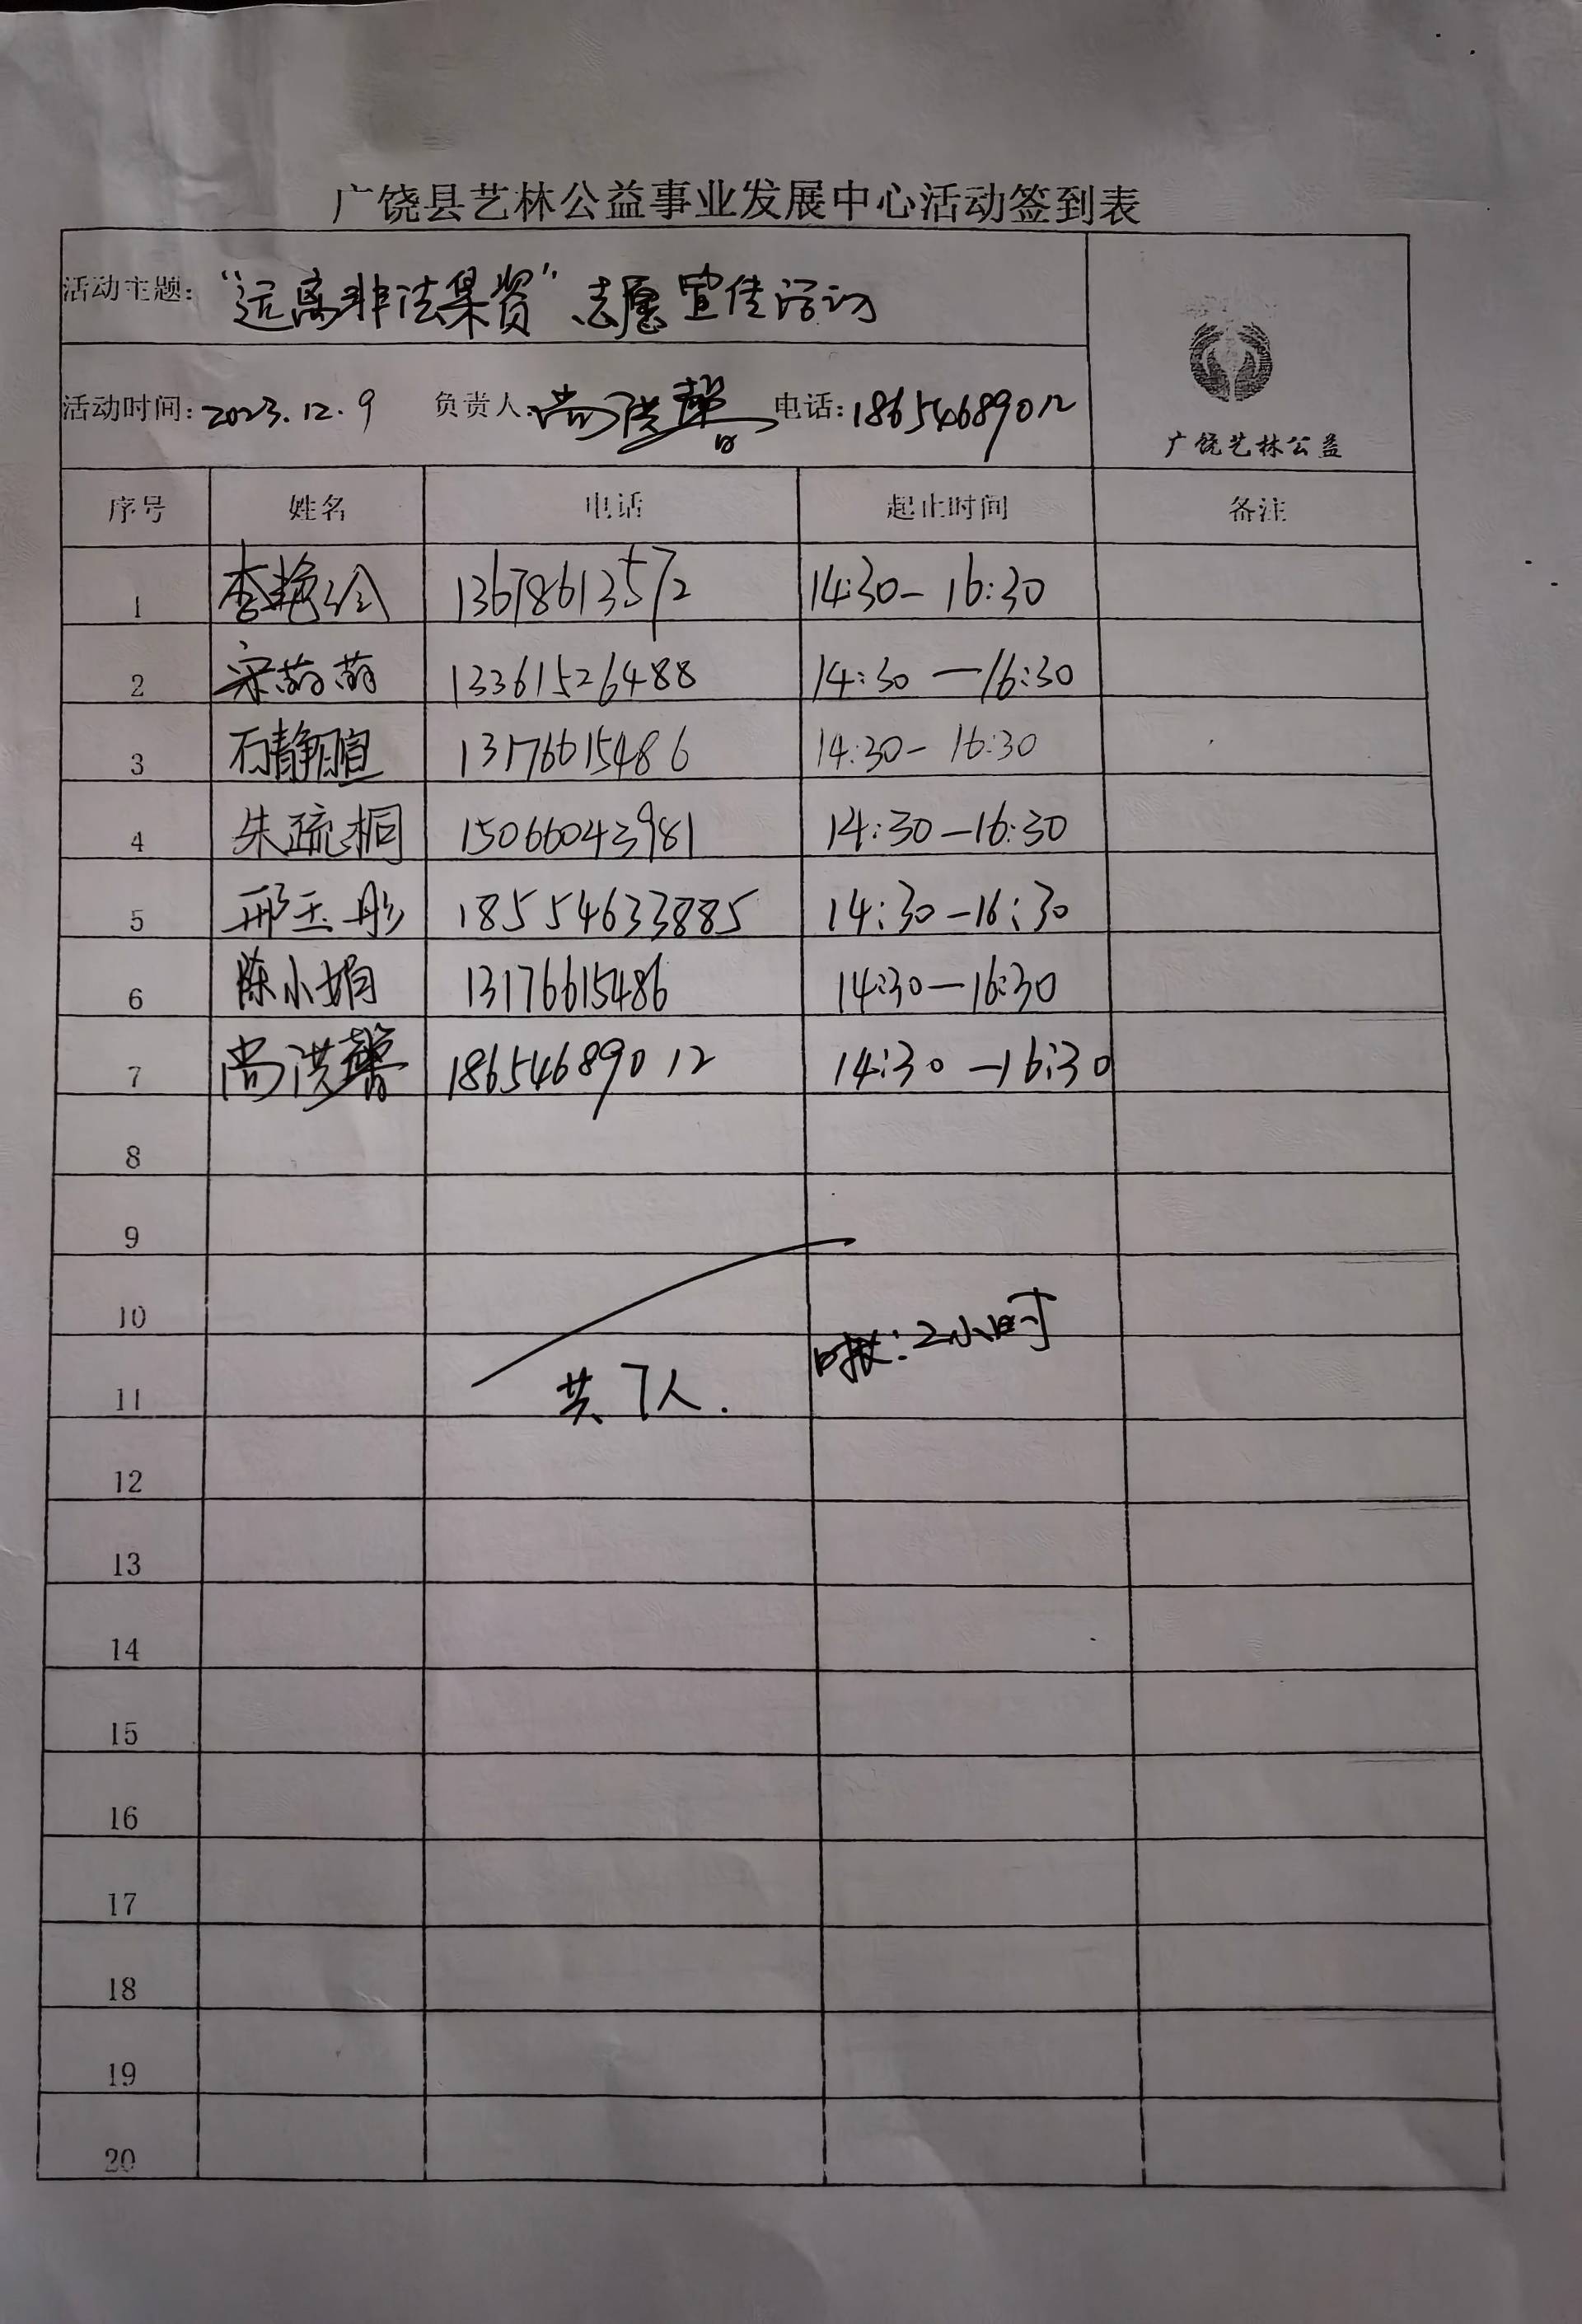 广饶县艺林公益事业发展中心活动签到表
活动主题：“远离非法集资”志愿宣传活动
活动时间：2023.12.9 负责人：尚洪馨 电话：18654689012
广饶艺林公益
序号 姓名 电话 起止时间 备注
1 李艳玲 13678613572 14:30-16:30
2 宋萌萌 13361526488 14:30—16:30
3 石静暄 13176615486 14:30-16:30
4 朱疏桐 15066043981 14:30-16:30
5 邢玉彤 18554633885 14:30-16:30
6 陈小娟 13176615486 14:30—16:30
7 尚洪馨 18654689012 14:30-16:30
8
9
10
11 共7人. 时长:2小时
12
13
14
15
16
17
18
19
20